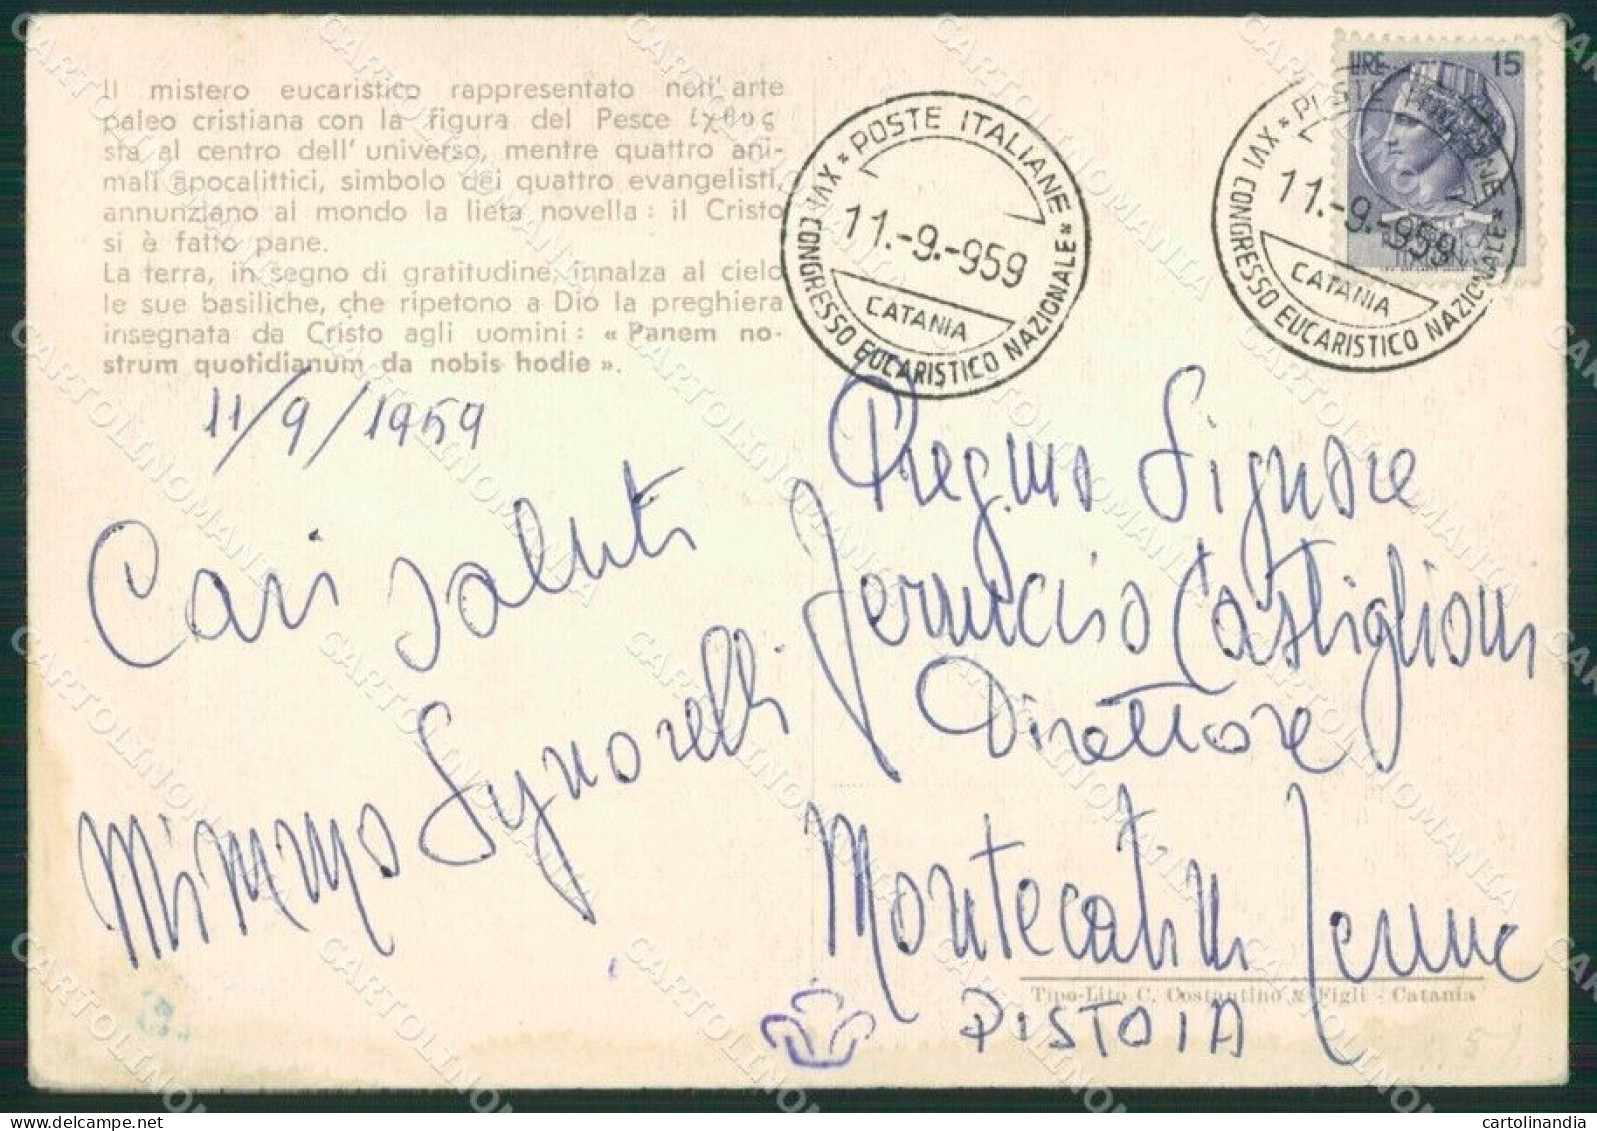 Il mistero eucaristico rappresentato nell'arte
paleo cristiana con la figura del Pesce ἰχθυς
sta al centro dell'universo, mentre quattro ani-
mali apocalittici, simbolo dei quattro evangelisti,
annunziano al mondo la lieta novella: il Cristo
si è fatto pane.
La terra, in segno di gratitudine, innalza al cielo
le sue basiliche, che ripetono a Dio la preghiera
insegnata da Cristo agli uomini: « Panem no-
strum quotidianum da nobis hodie ».
11/9/1959
Cari saluti
Mimmo Signorelli
* POSTE ITALIANE *
11.-9.-959
CATANIA
XVI CONGRESSO EUCARISTICO NAZIONALE
LIRE 15
* POSTE ITALIANE *
11.-9.-959
CATANIA
XVI CONGRESSO EUCARISTICO NAZIONALE
Preg.mo Signore
Ferruccio Castiglioni
Direttore
Montecatini Terme
Tipo-Lito C. Costantino & Figli - Catania
PISTOIA
CARTOLINOMANIA
cartolinandia